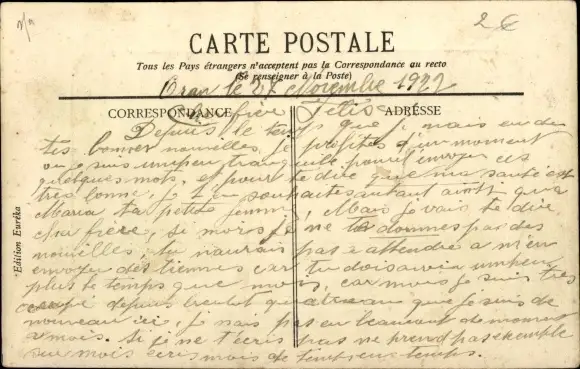 2€
CARTE POSTALE
Tous les Pays étrangers n'acceptent pas la Correspondance au recto
(Se renseigner à la Poste)
Oran le 27 Novembre 1922
CORRESPONDANCE ADRESSE
Cher frère Félix
Depuis le temps que j' mais eu de
tes bonnes nouvelles, je profites d'un moment
ou je suis un peu tranquille pour t'envoyer ces
quelques mots, et pour te dire que ma santé est
très bonne, je t'en souhaites autant ainsi qu'a
Maria ta petite femme, Mais je vais te dire,
cher frère, si mois je ne te donnes pas des
nouvelles, tu naurais pas a attendre a m'en
envoyer des tiennes car tu dois avoir un peu
plus le temps que mois, car mois je suis très
occupé depuis quatre que je suis de
nouveau ici, je nais pas eu beaucout de moment
a mois. Si je ne t'écris pas ne prend pas exemple
sur mois écris mois de temps en temps.
Edition Euréka